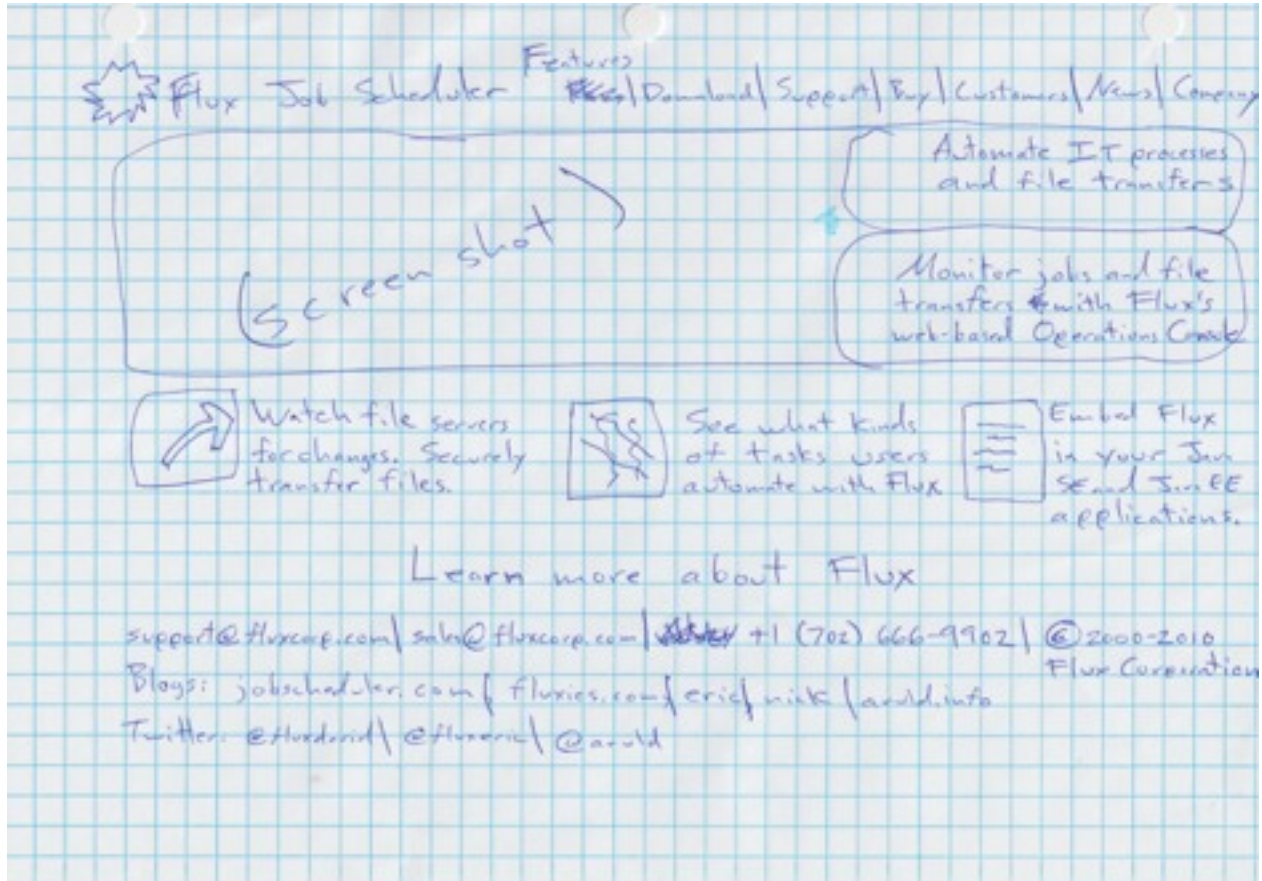 Features
Flux Job Scheduler | Download | Support | Buy | Customers | News | Company
Automate IT processes
and file transfers
(Screen shot)
Monitor jobs and file
transfers with Flux's
web-based Operations Console
Watch file servers
for changes. Securely
transfer files.
See what kinds
of tasks users
automate with Flux
Embed Flux
in your Java
SE and Java EE
applications.
Learn more about Flux
support@fluxcorp.com | sales@fluxcorp.com | +1 (702) 666-9902 | © 2000-2010
Flux Corporation
Blogs: jobscheduler.com | fluxies.com | eric | nick | arvld.info
Twitter: @fluxdavid | @fluxeric | @arvld